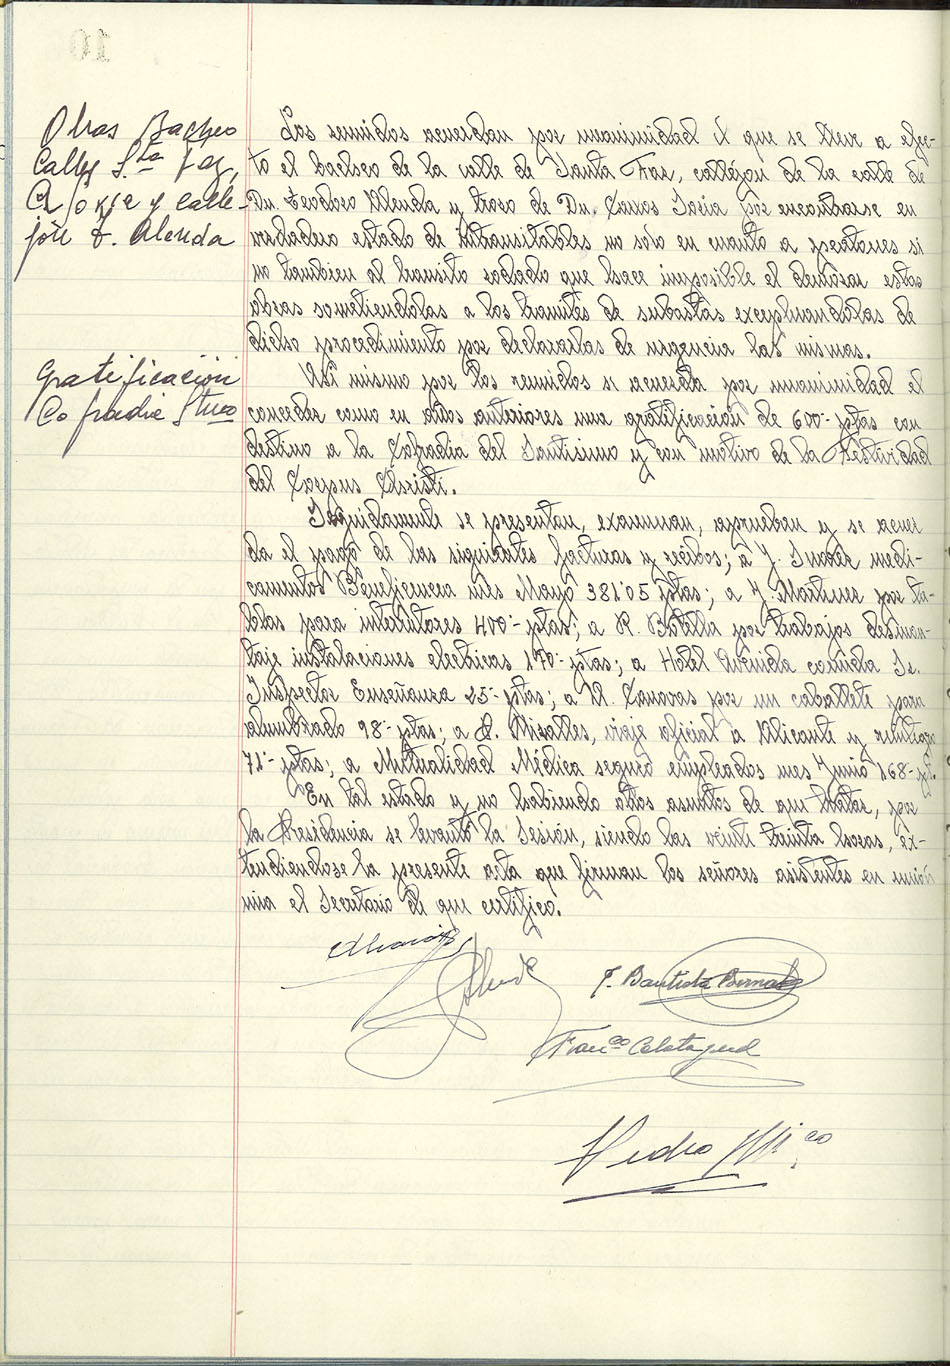 Obras Bacheo
Calles Sta Faz,
C. Jorge y calle-
jón T. Alenda
Los reunidos acuerdan por unanimidad el que se lleve a efec-
to el bacheo de la calle de Santa Faz, callejon de la calle de
Dn. Teodoro Alenda y trozo de Dn. Carlos Soria por encontrarse en
verdadero estado de intransitables no solo en cuanto a peatones si
no tambien al transito rodado que hace imposible el demorar estas
obras sometiendolas a los tramites de subastas exceptuandolas de
dicho procedimiento por declararlas de urgencia las mismas.
Gratificación
Cofradia Stmo
Asi mismo por los reunidos se acuerda por unanimidad el
conceder como en años anteriores una gratificación de 600- ptas con
destino a la Cofradia del Santisimo y con motivo de la Festividad
del Corpus Christi.
Seguidamente se presentan, examinan, aprueban y se acuer
da el pago de las siguientes facturas y recibos; a J. Suarez medi-
camentos Beneficencia mes Mayo 381'05 ptas; a J. Martinez por ta-
blas para interrutores 400'- ptas; a R. Botella por trabajos desmon-
taje instalaciones electricas 170'- ptas; a Hotel Avenida comida Sr.
Inspector Enseñanza 25'- ptas; a A. Canovas por un caballete para
alumbrado 98'- ptas; a Miralles, viaje oficial a Alicante y
71'- ptas; a Mutualidad Médica seguro empleados mes Junio 168- pt.
En tal estado y no habiendo otros asuntos de que tratar, por
la Presidencia se levantó la Sesión, siendo las veinte treinta horas, ex-
tendiendose la presente acta que firman los señores asistentes en unión
mia el Secretario de que certifico.
J. Bautista Bernabe
Franco Calatayud
Pedro